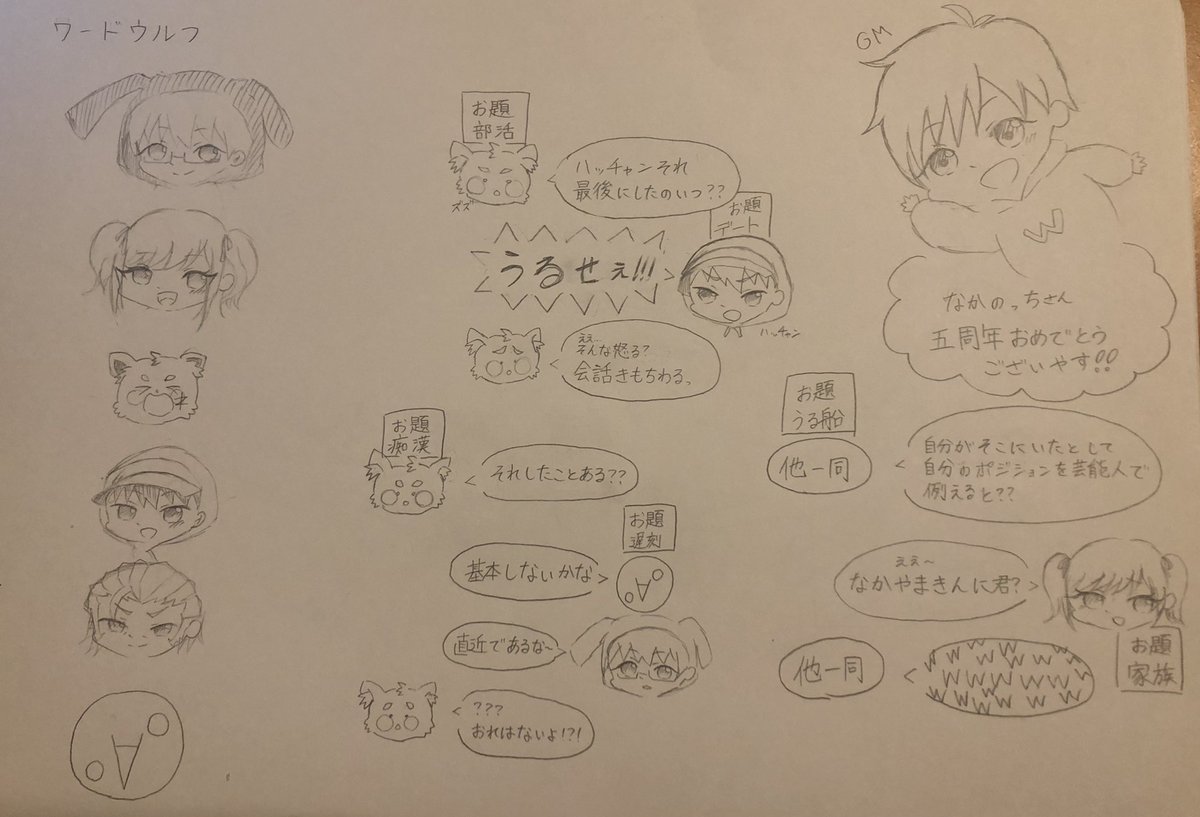 ワードウルフ
GM
お題
部活
ハッチャンそれ
最後にしたのいつ??
ズズ
お題
デート
うるせぇ!!!
ハッチャン
ええ…
そんな怒る?
会話きもちわる。
なかのっちさん
五周年おめでとう
ございやす!!
お題
痴漢
それしたことある??
お題
遅刻
基本しないかな
直近であるな~
???
おれはないよ!?!
お題
うる船
他一同
自分がそこにいたとして
自分のポジションを芸能人で
例えると??
ええ~
なかやまきんに君?
お題
家族
他一同
W W W W W W W W W W W W W W W W W W W W W W
W